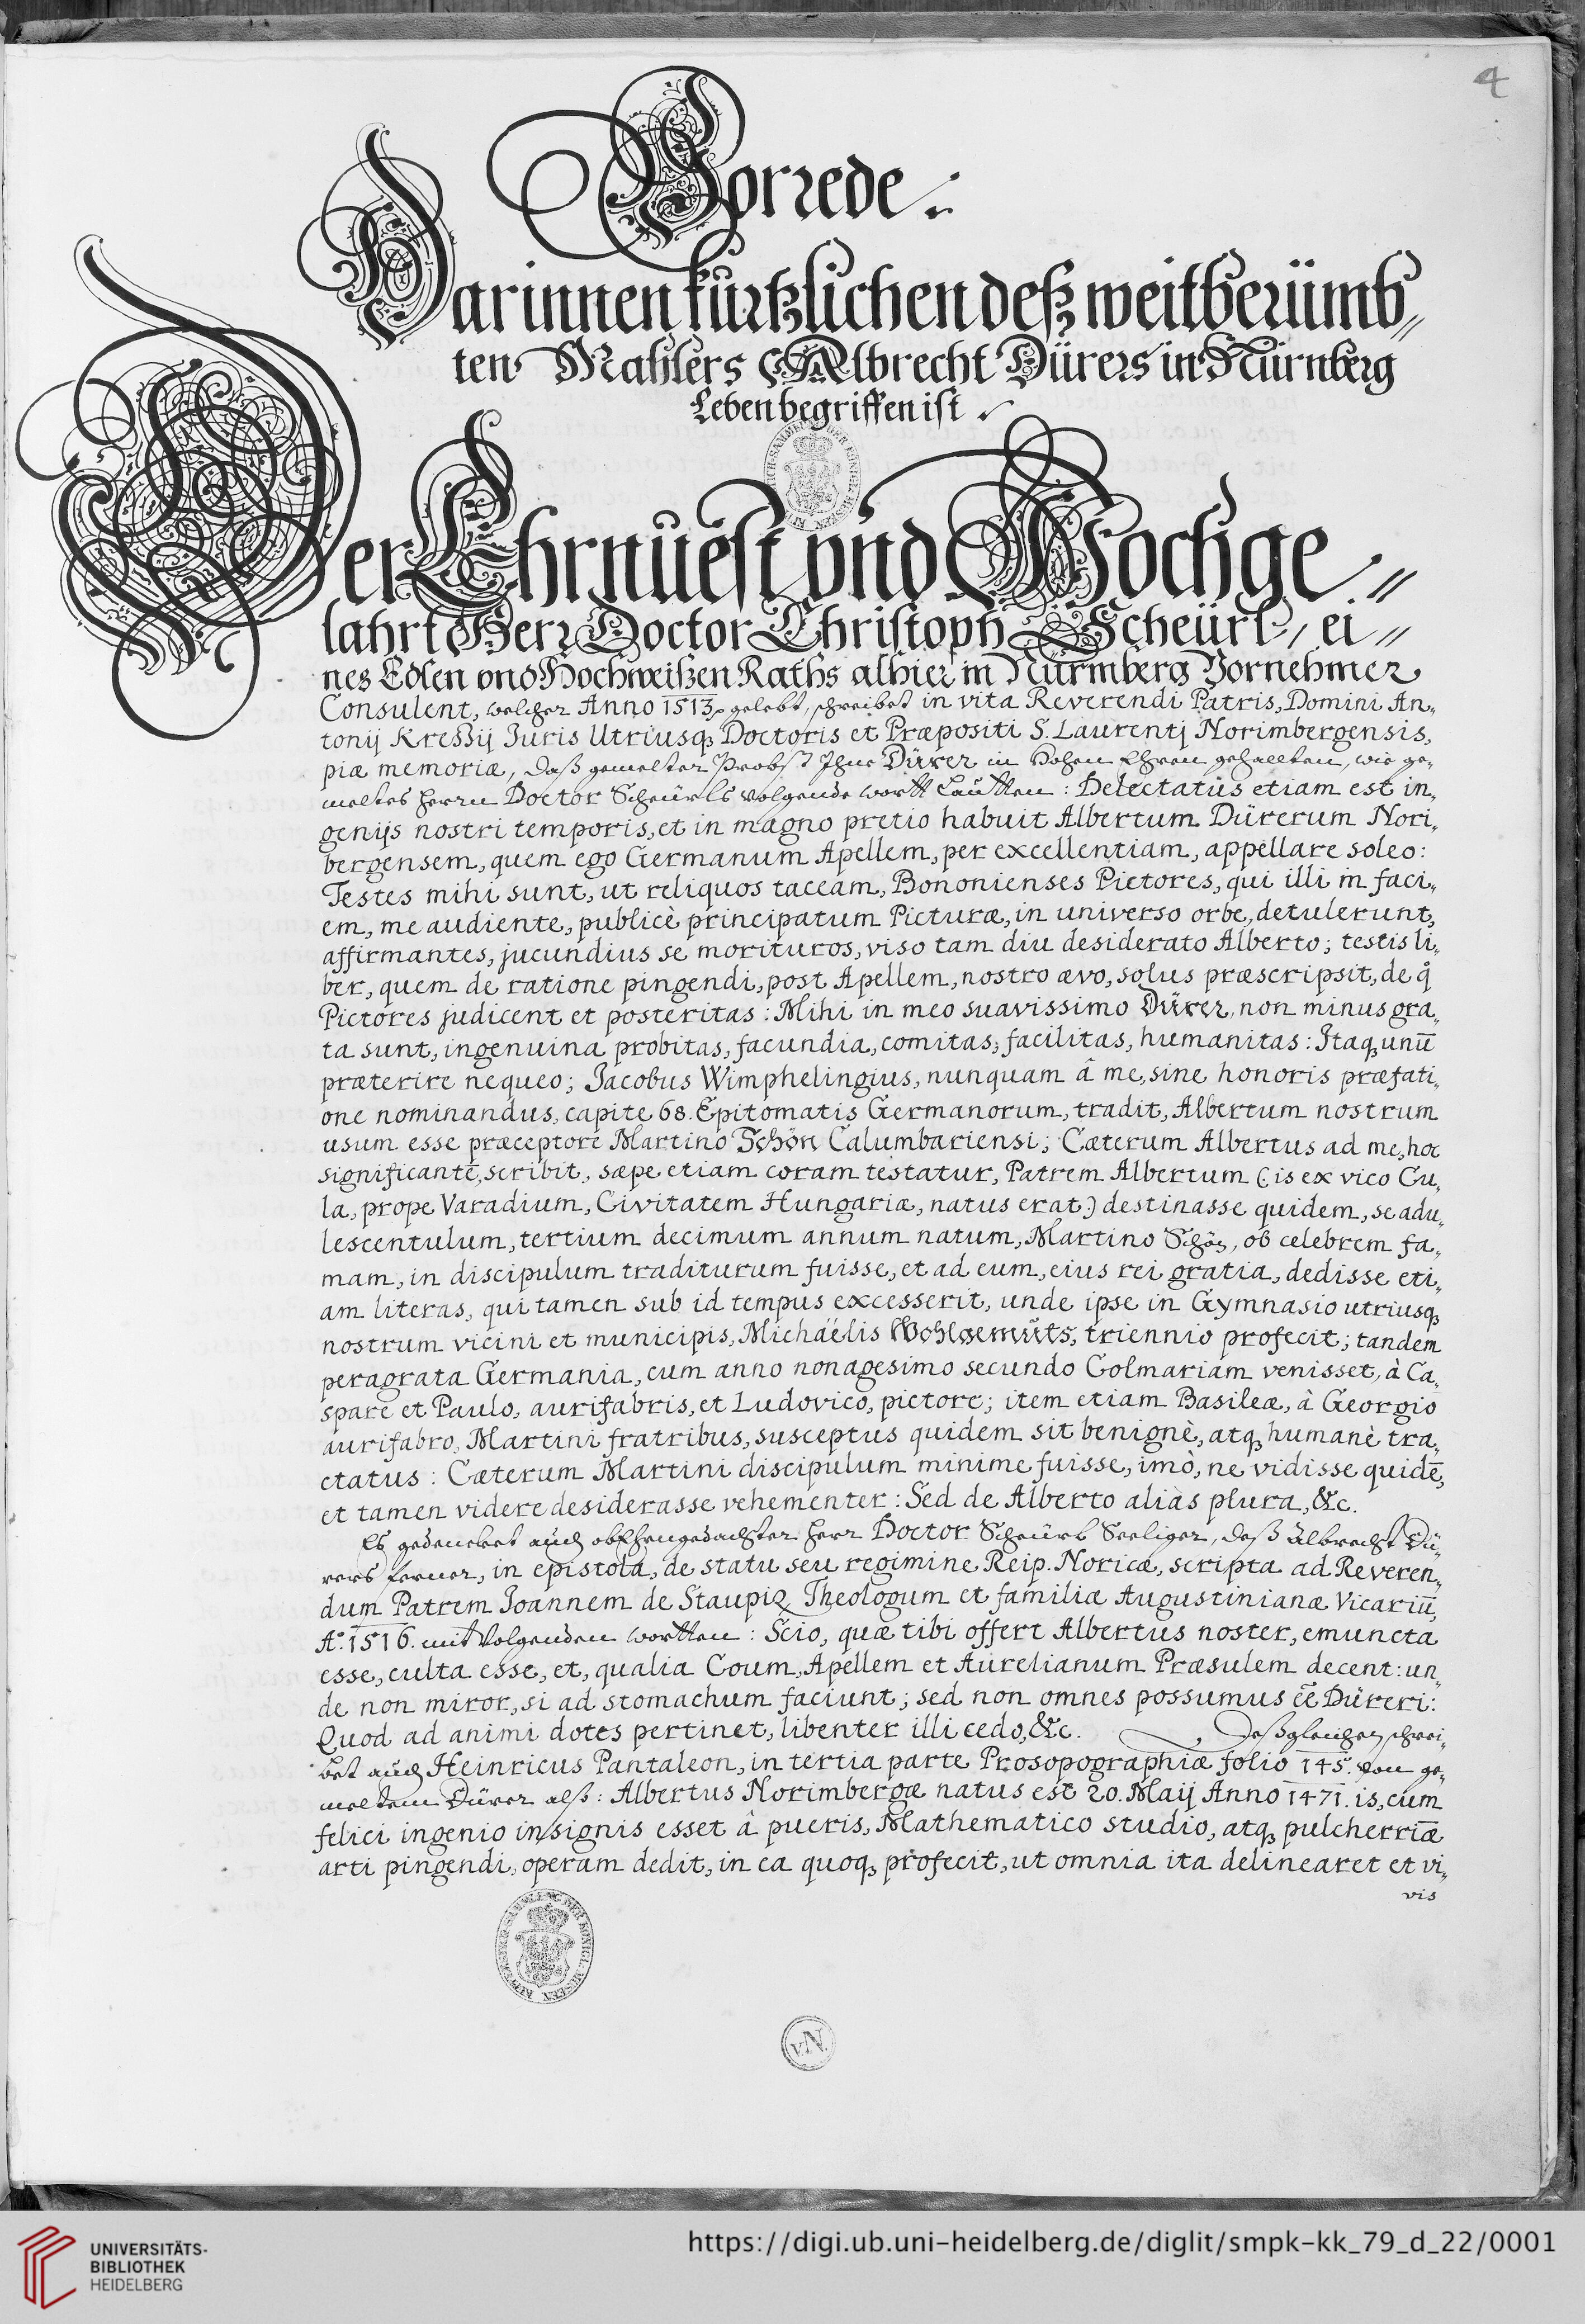 4
Vorrede.
Darinnen kurtzlichen deß weitberümb„
ten Mahlers Albrecht Dürers in Nürnberg
Leben begriffen ist.
Der Ehrnuest vnd Hochge„
lahrt Herr Doctor Christoph Scheürl, ei„
nes Edlen vnd Hochweißen Raths alhier in Nürmberg Vornehmer
Consulent, welcher Anno 1513. gelebt, schreibet in vita Reverendi Patris, Domini An„
tonij Kreßij Juris Utriusq; Doctoris et Præpositi S. Laurentj Norimbergensis,
piæ memoriæ, daß gemelter Probst Ihne Dürer in Hohen Ehren gehallten, wie ge„
meltes herrn Doctor Scheürls volgende wortt Lautten: Delectatus etiam est in„
genijs nostri temporis, et in magno pretio habuit Albertum Dürerum Nori„
bergensem, quem ego Germanum Apellem, per excellentiam, appellare soleo:
Testes mihi sunt, ut reliquos taceam, Bononienses Pictores, qui illi in faci„
em, me audiente, publicè principatum Picturæ, in universo orbe, detulerunt,
affirmantes, jucundius se morituros, viso tam diu desiderato Alberto; testis li„
ber, quem de ratione pingendi, post Apellem, nostro ævo, solus præscripsit, de qͦ
Pictores judicent et posteritas: Mihi in meo suavissimo Dürer, non minus gra„
ta sunt, ingenuina probitas, facundia, comitas, facilitas, humanitas: Itaq; unū
præterire nequeo; Jacobus Wimphelingius, nunquam â me, sine honoris præfati„
one nominandus, capite 68. Epitomatis Germanorum, tradit, Albertum nostrum
usum esse præceptore Martino Schön Calumbariensi; Cæterum Albertus ad me, hoc
significantē, scribit, sæpe etiam coram testatur, Patrem Albertum (: is ex vico Cu„
la, prope Varadium, Civitatem Hungariæ, natus erat :) destinasse quidem, se adu„
lescentulum, tertium decimum annum natum, Martino Schön, ob celebrem fa„
mam, in discipulum traditurum fuisse, et ad eum, eius rei gratia, dedisse eti„
am literas, qui tamen sub id tempus excesserit, unde ipse in Gymnasio utriusq;
nostrum vicini et municipis, Michaélis Wohlgemuts, triennio profecit; tandem
peragrata Germania, cum anno nonagesimo secundo Colmariam venisset, à Ca„
spare et Paulo, aurifabris, et Ludovico, pictore; item etiam Basileæ, â Georgio
aurifabro, Martini fratribus, susceptus quidem sit benignè, atq; humanè tra„
ctatus: Cæterum Martini discipulum minime fuisse, imò, ne vidisse quidē,
et tamen videre desiderasse vehementer: Sed de Alberto aliàs plura, &c.
Es gedencket auch obEhrengedachter Herr Doctor Scheürl Seeliger, deß Albrecht Dü„
rers ferner, in epistola, de statu seu regimine Reip. Noricæ, scripta ad Reveren„
dum Patrem Joannem de Staupiz Theologum et familiæ Augustinianæ Vicariū,
Aº. 1516. mit Volgenden wortten: Scio, quæ tibi offert Albertus noster, emuncta
esse, culta esse, et, qualia Coum, Apellem et Aurelianum Præsulem decent: un„
de non miror, si ad stomachum faciunt; sed non omnes possumus eē Düreri:
Quod ad animi dotes pertinet, libenter illi cedo, &c. Deßgleichen schrei„
bet auch Heinricus Pantaleon, in tertia parte Prosopographiæ folio 145. von ge„
meltem Dürer alß: Albertus Norimbergæ natus est 20. Maij Anno 1471. is, cum
felici ingenio insignis esset â pueris, Mathematico studio, atq; pulcherriæ
arti pingendi, operam dedit, in ea quoq; profecit, ut omnia ita delinearet et vi„
vis
v.N.
UNIVERSITÄTS-
BIBLIOTHEK
HEIDELBERG
https://digi.ub.uni-heidelberg.de/diglit/smpk-kk_79_d_22/0001